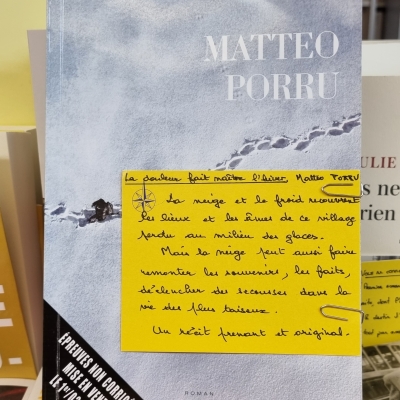 MATTEO
PORRU
La douleur fait naître l'hiver, Matteo PORRU
La neige et le froid recouvrent
les lieux et les âmes de ce village
perdu au milieu des glaces.
Mais la neige peut aussi faire
remonter les souvenirs, les faits,
déclencher des secousses dans la
vie des plus taiseux.
Un récit prenant et original.
ÉPREUVES NON CORRIG
MISE EN VEN
LE 1er
ROMAN
ULIE
s ne
rien